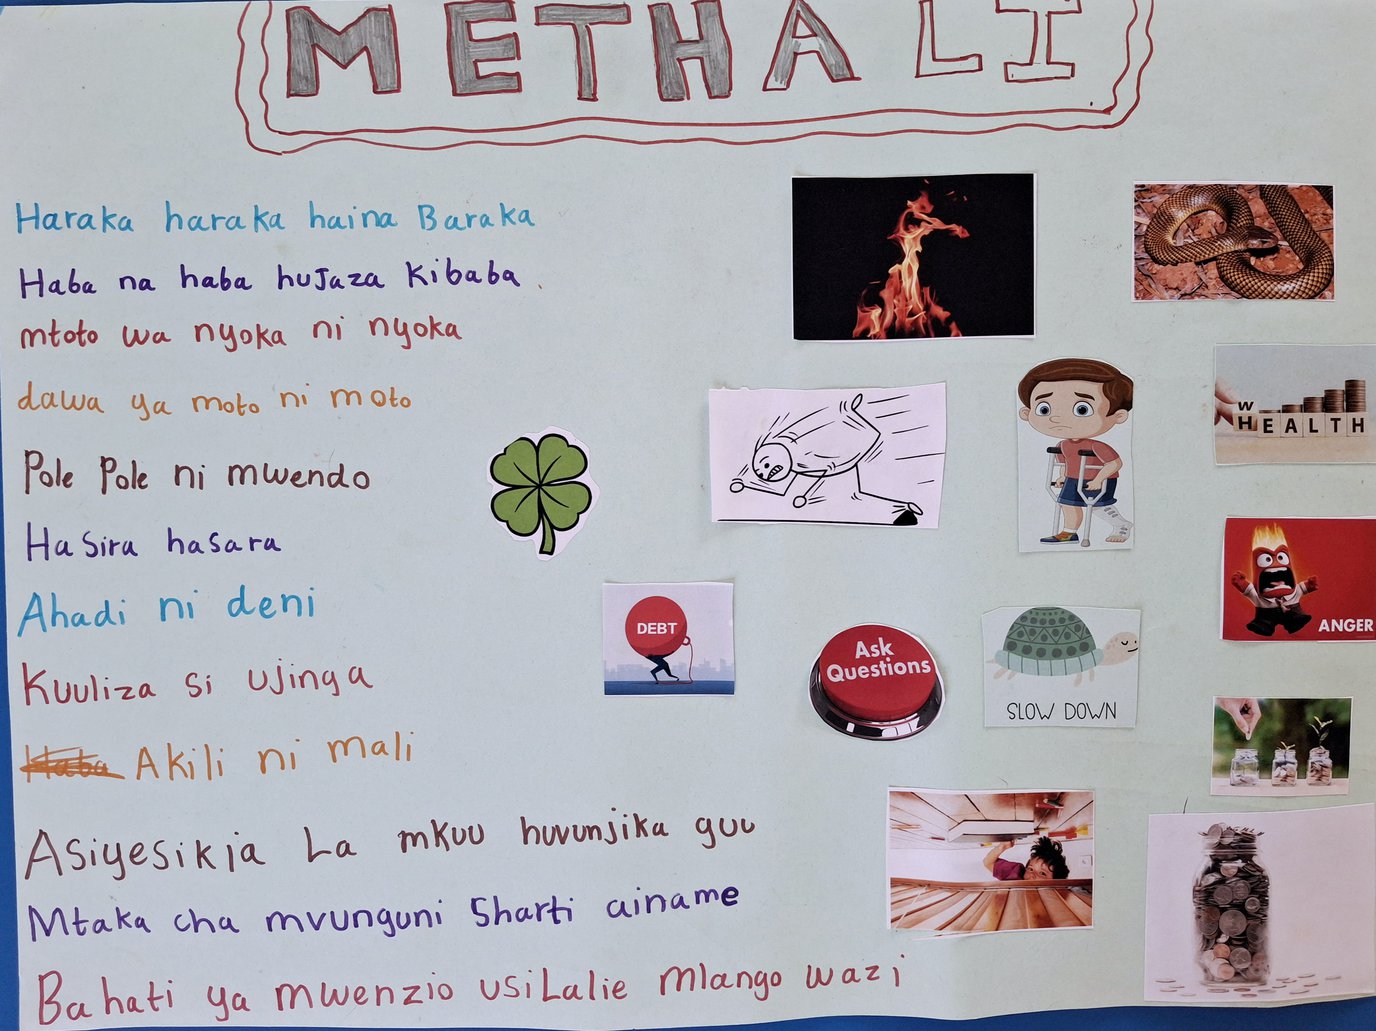 METHALI
Haraka haraka haina Baraka
Haba na haba hujaza kibaba.
mtoto wa nyoka ni nyoka
dawa ya moto ni moto
Pole Pole ni mwendo
Hasira hasara
Ahadi ni deni
Kuuliza si ujinga
Haba Akili ni mali
Asiyesikia La mkuu huvunjika guu
Mtaka cha mvunguni Sharti ainame
Bahati ya mwenzio usiLalie mlango wazi
W
HEALTH
ANGER
DEBT
Ask
Questions
SLOW DOWN